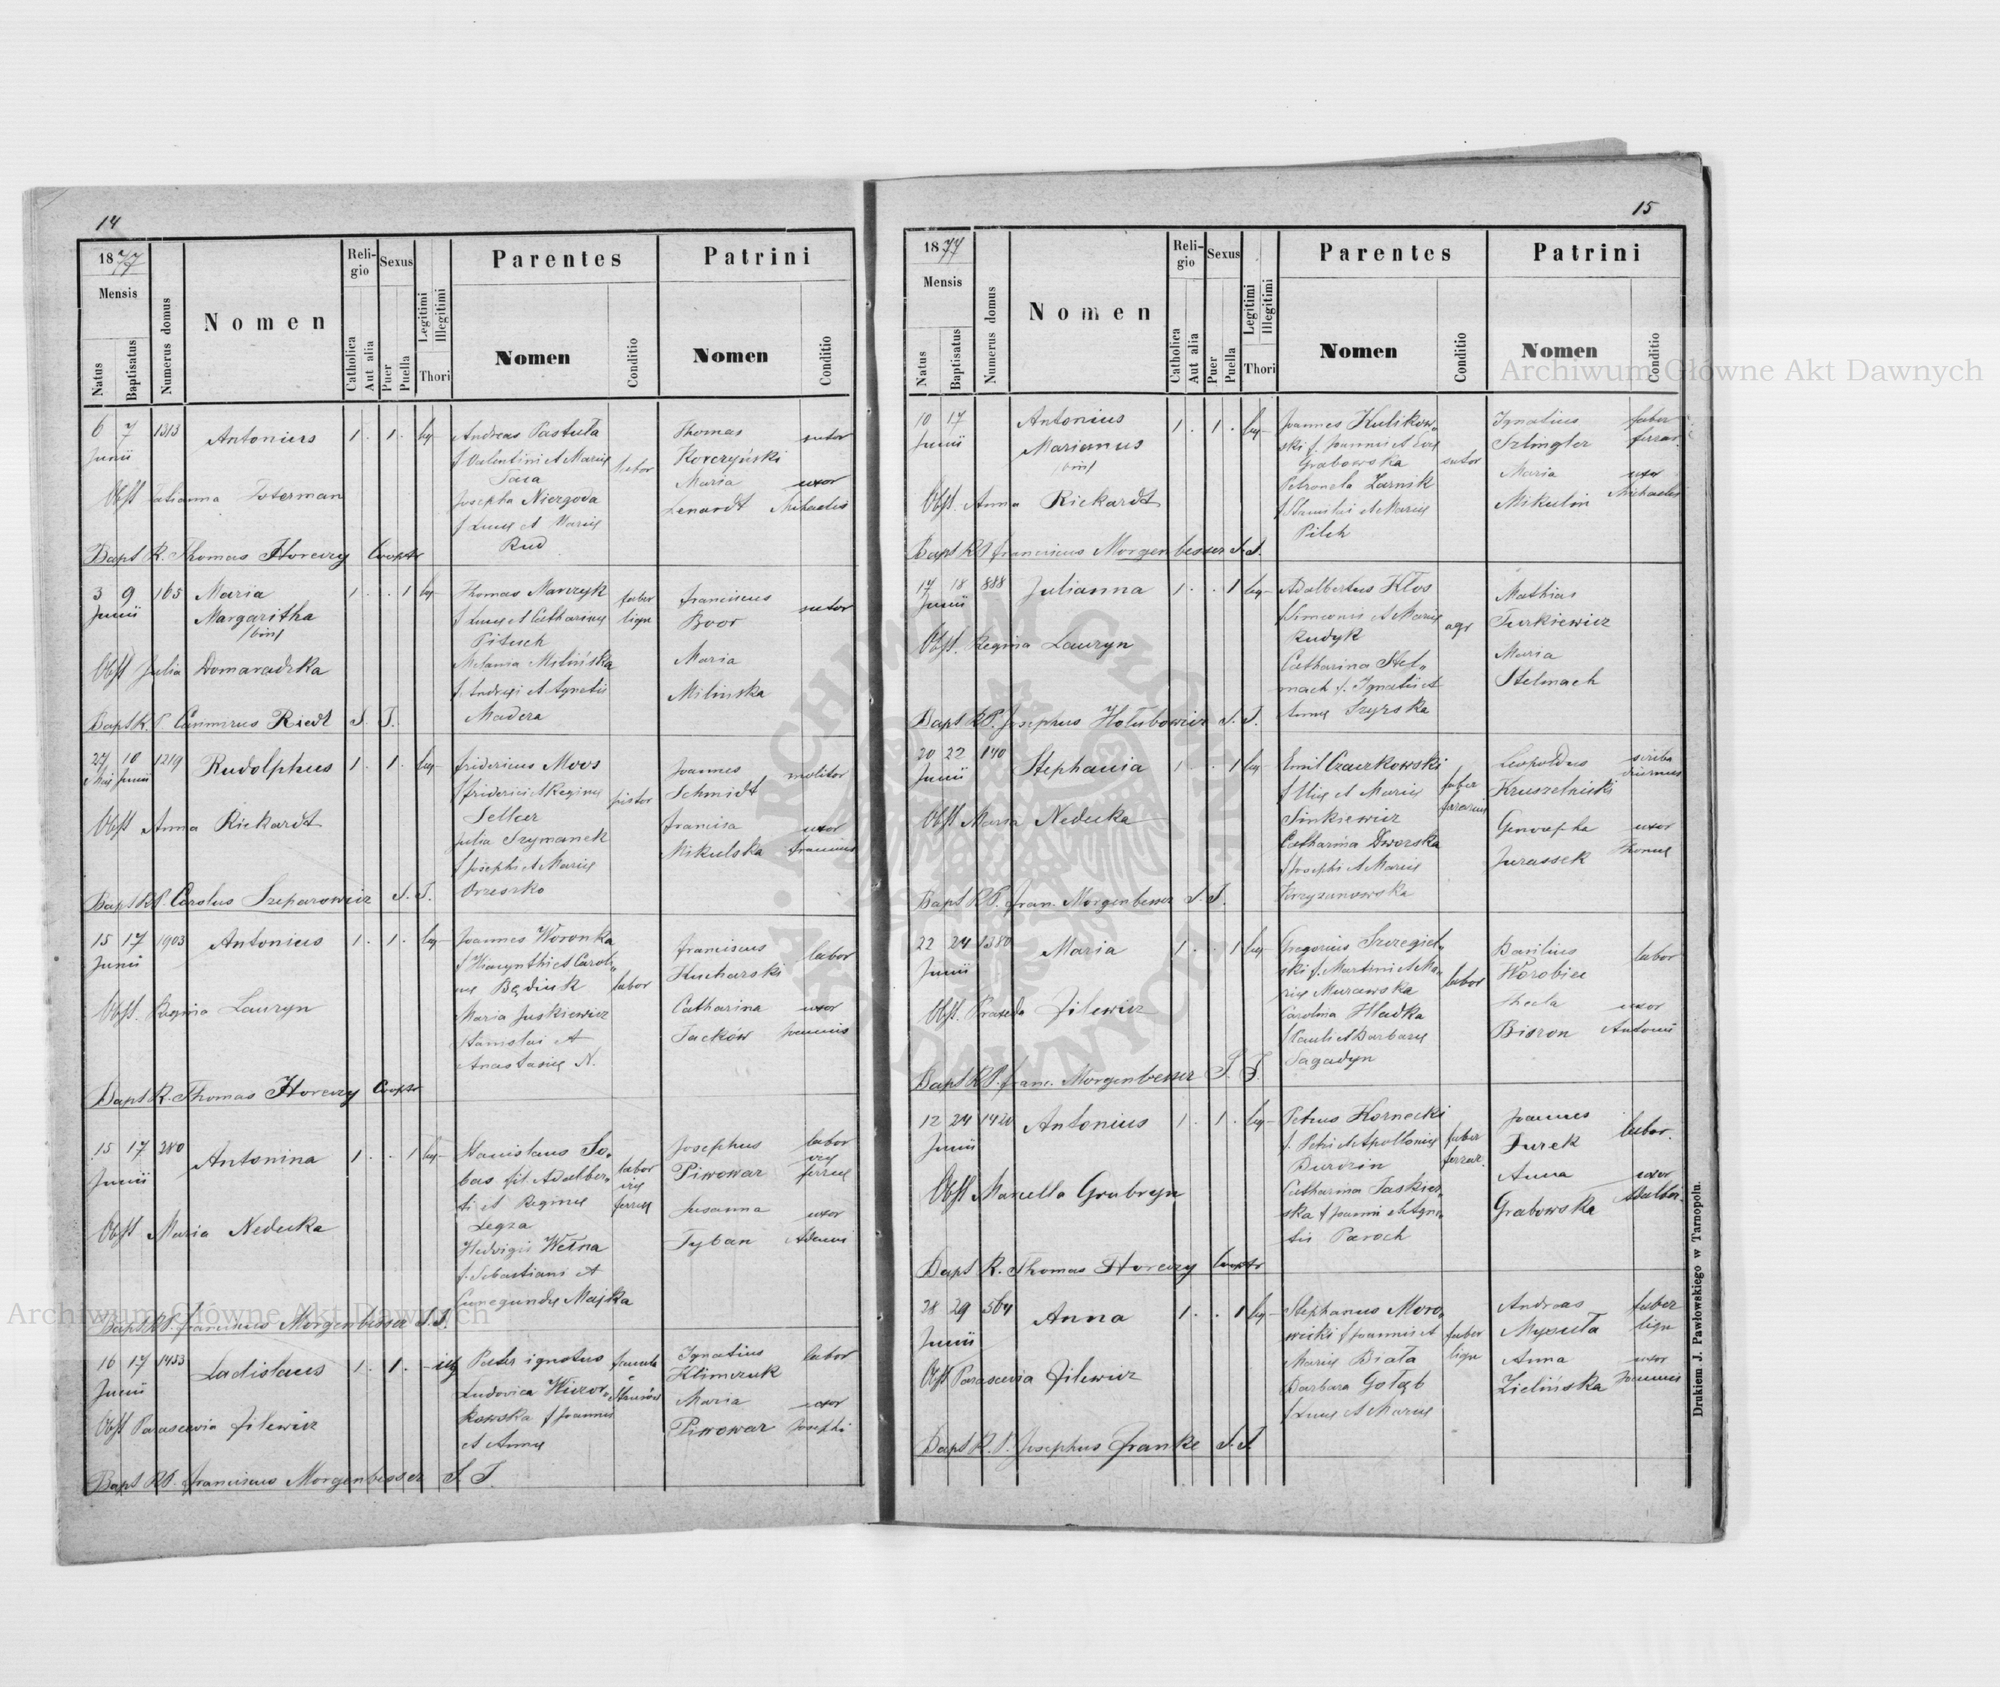 14
1877
Mensis
Natus
Baptisatus
Numerus domus
Nomen
Religio
Catholica
Aut alia
Sexus
Puer
Puella
Legitimi
Illegitimi
Thori
Parentes
Nomen
Conditio
Patrini
Nomen
Conditio
6 7 1313 Antonius 1 . 1 . leg Andreas Pastuła Thomas sutor
Junii f Valentini et Mariæ labor Korczyński
Obst Tatianna Tosterman Josepha Niezgoda Maria uxor
f Lucæ et Mariæ Lenardt Michaelis
Rud
Bapt R. Thomas Horeczy Cooptr
3 9 165 Maria 1 . . 1 leg Thomas Marczyk faber Franciscus sutor
Junii Margaritha f Lucæ et Catharinæ lign Boor
/bin/ Pituch
Obst Julia Domaradzka Melania Milińska Maria
f. Andreæ et Agnetis Milinska
Madera
Bapt R. P. Casimirus Riedl S. J.
27 10 1219 Rudolphus 1 . 1 . leg Fridericus Moos Joannes molitor
Maii Junii f Friderici et Reginæ pistor Schmidt
Obst Anna Rickardt Julia Szymanek Francisca uxor
f Josephi et Mariæ Mikulska Francisci
Orzeszko
Bapt R.P. Carolus Szeparowicz S. J.
15 17 1903 Antonius 1 . 1 . leg Joannes Woronka Franciscus labor
Junii f Hiacynthi et Caroli- Kucharski
næ Będiuk labor
Obst. Regina Lauryn Maria Juskiewicz Catharina uxor
Stanislai et Jacków Joannis
Anastasiæ N.
Bapt R. Thomas Horeczy Cooptr
15 17 280 Antonina 1 . . 1 leg Stanislaus So- Josephus labor
Junii bas fil. Adalber- labor Piwowar viæ
ti et Reginæ viæ ferreæ
Legza ferreæ Susanna uxor
Obst Maria Nedecka Hedvigis Wełna Tyban Adami
f. Sebastiani et
Cunegundæ Majka
Bapt R.P. Franciscus Morgenbesser S.J.
16 17 1453 Ladislaus 1 . 1 . illeg Pater ignotus famula Ignatius labor
Junii Ludovica Klimczuk
kowska f Joannis Maria uxor
Obst Parascevia Zilewicz et Annæ Piwowar Josephi
Bapt R.P. Franciscus Morgenbesser S. J.
15
1877
Mensis
Natus
Baptisatus
Numerus domus
Nomen
Religio
Catholica
Aut alia
Sexus
Puer
Puella
Legitimi
Illegitimi
Thori
Parentes
Nomen
Conditio
Patrini
Nomen
Conditio
10 17 Antonius 1 . 1 . leg Joannes Kulikow- Ignatius faber
Junii Marianus ski f. Joannis et Evæ Szlingler ferrar.
/bin/ Grabowska sutor Maria uxor
Obst. Anna Rickardt Petronela Zarnik Mikulin Michaelis
f Stanislai et Mariæ
Pilch
Bapt R.P. Franciscus Morgenbesser S.J.
17 18 888 Julianna 1 . . 1 leg Adalbertus Kłos Mathias
Junii f Simeonis et Mariæ agr Turkiewicz
Obst. Regina Lauryn Rudyk Maria
Catharina Stel- Stelmach
mach f. Ignatii et
Annæ Szyrska
Bapt R.P. Josephus Hołubowicz S. J.
20 22 140 Stephania 1 . . 1 leg Emil Czaczkowski Leopoldus scriba
Junii f Eliæ et Mariæ faber Kruszelnicki diurnus
Sinkiewicz ferrarius
Obst Maria Nedecka Catharina Dworska Genovepha uxor
f Josephi et Mariæ Jurassek Thomæ
Krzyzanowska
Bapt R.P. Fran. Morgenbesser S. J.
22 24 1380 Maria 1 . . 1 leg Gregorius Szczegiel- Basilius labor
Junii ski f. Martini et Ma- Worobiec
riæ Murawska labor Thecla uxor
Obst. Praxeda Zilewicz Carolina Hładka Bisron Antonii
f Pauli et Barbaræ
Sagadyn
Bapt R.P. Franc. Morgenbesser S. J.
12 24 1420 Antonius 1 . 1 . leg Petrus Kornecki Joannes labor.
Junii f. Petri et Apolloniæ faber Turek
Burdzin ferrar. Anna uxor
Obst Marcella Grabryn Catharina Jaskier- Grabowska Adalberti
ska f Joannis et Agne-
tis Paroch
Bapt R. Thomas Horeczy Cooptr
28 29 564 Anna 1 . . 1 leg Stephanus Moro- Andreas faber
Junii wiecki f Joannis et faber Myszuta lign
Mariæ Biała lign Anna uxor
Obst Parascevia Zilewicz Barbara Gołąb Zielińska Joannis
f Lucæ et Mariæ
Bapt R. P. Josephus Franke S. J.
Drukiem J. Pawłowskiego w Tarnopolu.
Archiwum Główne Akt Dawnych
Archiwum Główne Akt Dawnych
ARCHIWUM GŁÓWNE AKT DAWNYCH